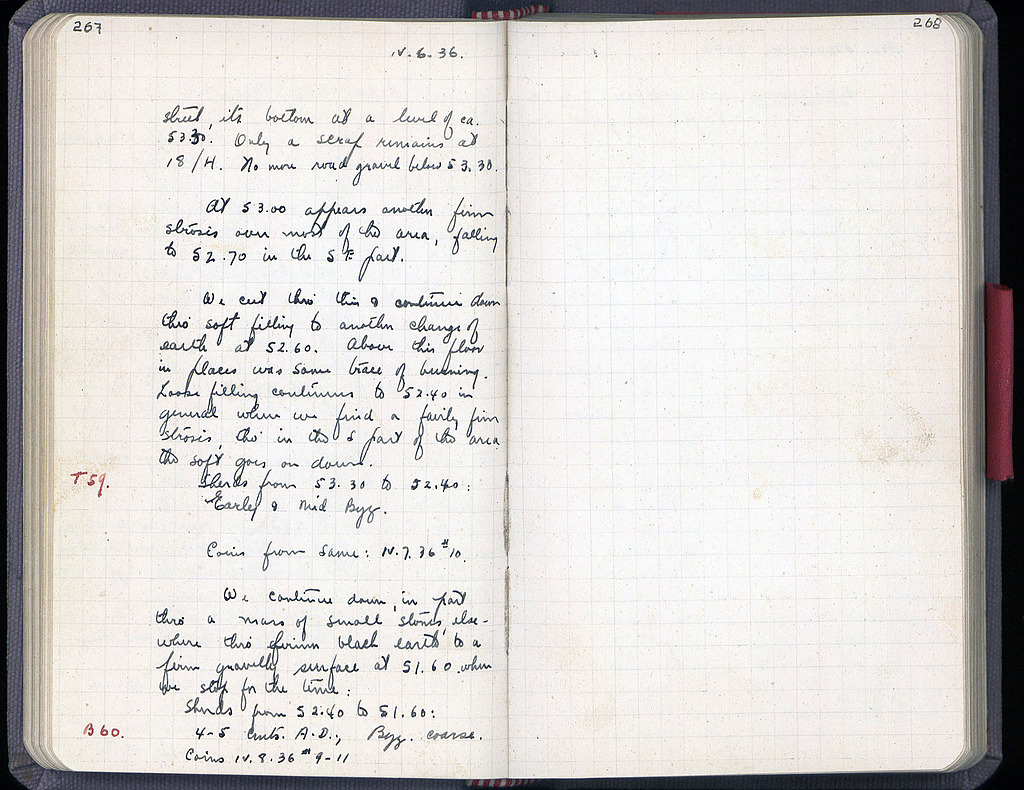 267
268
IV. 6. 36.
street, its bottom at a level of ca.
53.30. Only a scrap remains at
18/H. No more road gravel below 53.30.
At 53.00 appears another firm
strosis over most of the area, falling
to 52.70 in the SE part.
We cut thro' this & continue down
thro' soft filling to another change of
earth at 52.60. Above this floor
in places was some trace of burning.
Loose filling continues to 52.40 in
general where we find a fairly firm
strosis, tho' in the S part of the area
the soft goes on down.
T 59.
Sherds from 53.30 to 52.40:
Early & Mid Byz.
Coins from same: IV. 7. 36 #10.
We continue down, in part
thro' a mass of small stones, else-
where thro' firm black earth to a
firm gravelly surface at 51.60 where
we stop for the time.
Sherds from 52.40 to 51.60:
B 60.
4-5 Cents. A.D.; Byz. coarse.
Coins IV. 8. 36 #9-11